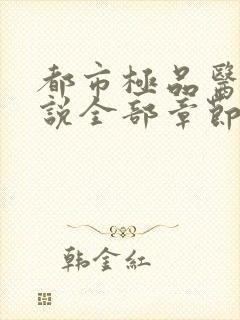 都市極品醫
說全部章節
韩金红